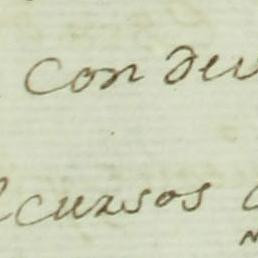 con deu
cursos